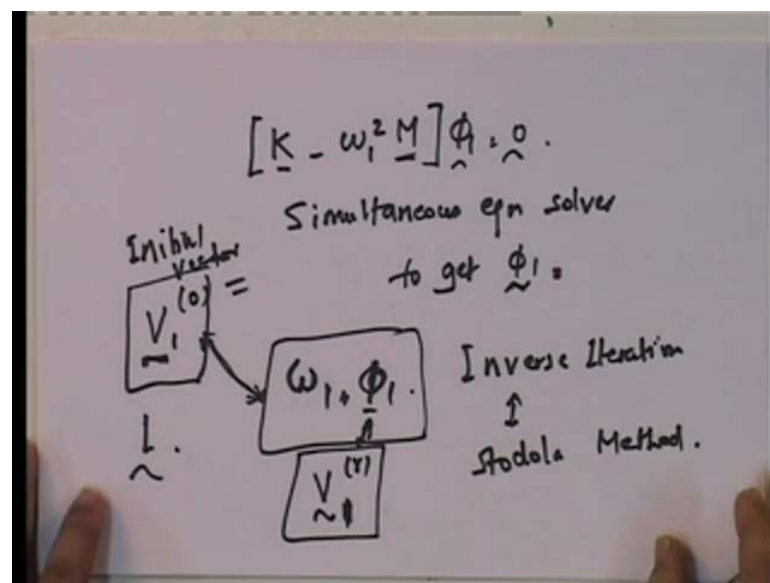 [K - ω₁² M] ϕ₁ = 0.
Simultaneous eqn solver
to get ϕ₁ =
Initial
vector
V₁⁽⁰⁾ =
ω₁, ϕ₁.
Inverse Iteration
↕
Stodola Method.
1.
V₁⁽ʳ⁾